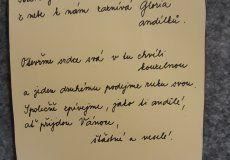 z nebe k nám zaznívá Gloria
andílků.
Otevřeme srdce svá v tu chvíli
kouzelnou
a jeden druhému podejme ruku svou.
Společně zpívejme, jako ti andělé,
ať přijdou Vánoce,
šťastné a veselé!